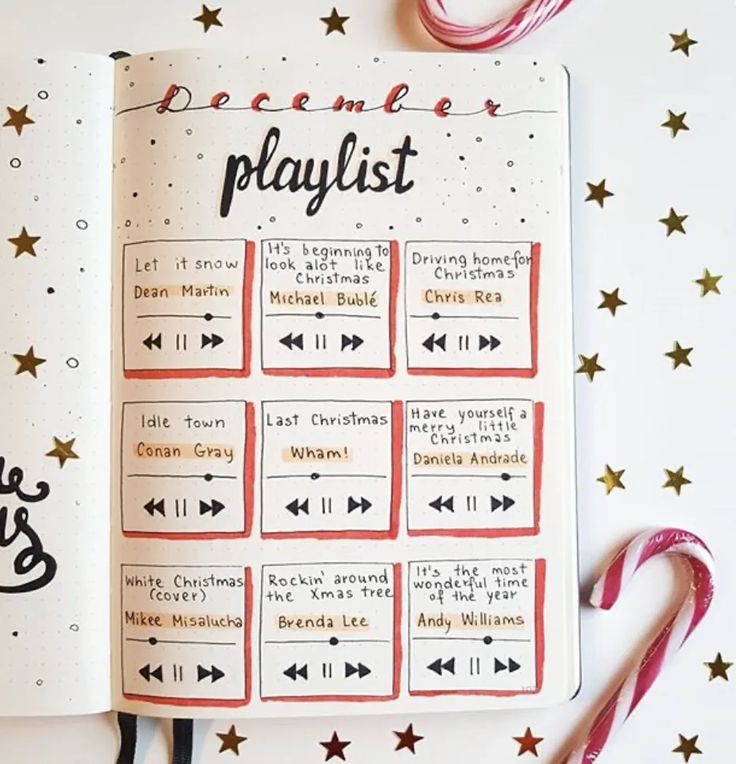 December
playlist
Let it snow
Dean Martin
It's beginning to
look alot like
Christmas
Michael Bublé
Driving home for
Christmas
Chris Rea
Idle town
Conan Gray
Last Christmas
Wham!
Have yourself a
merry little
Christmas
Daniela Andrade
White Christmas
(cover)
Mikee Misalucha
Rockin' around
the Xmas tree
Brenda Lee
It's the most
wonderful time
of the year
Andy Williams